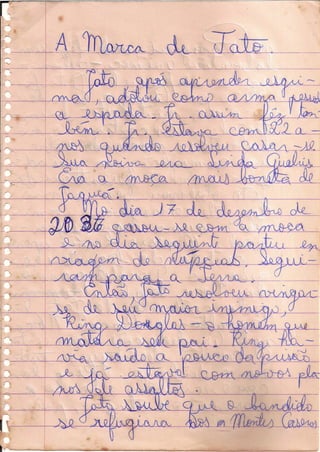 A Marca de Tato.
Tato, após aprender esgri-
ma, adotou como arma pessoal
a espada. Jr. assim fêz tam-
bém. Jr. estava com 22 a-
nos quando resolveu casar-se
Sua noiva era Linda
Era a moça mais bonita de
No dia 17 de dezembro de
casou-se com a moça
e no dia seguinte partiu em
viagem de núpcias. Segui-
ram para a Terra.
Então, Tato resolveu vingar-
se de seu maior inimigo,
King Douglas - o homem que
matara seu pai. King ha-
via saído a pouco da prisão
e já estava com novos pla-
nos de assaltos.
Tato soube que o bandido
se refugiara nos Montes